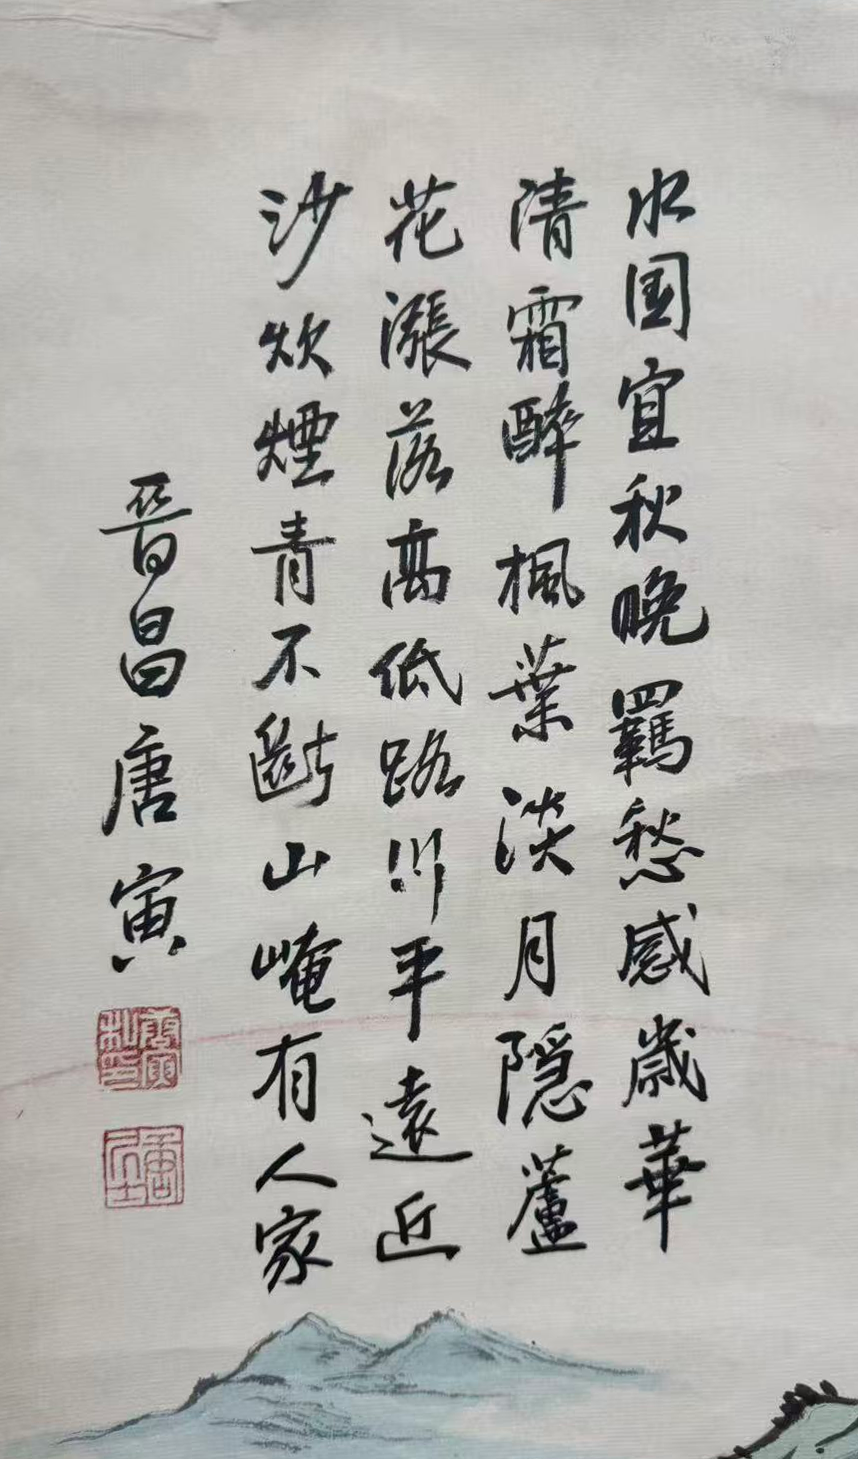 水国宜秋晚羈愁感歲華
清霜醉楓葉淡月隱蘆
花漲落高低路川平遠近
沙炊煙青不斷山崦有人家
晉昌唐寅
唐寅私印